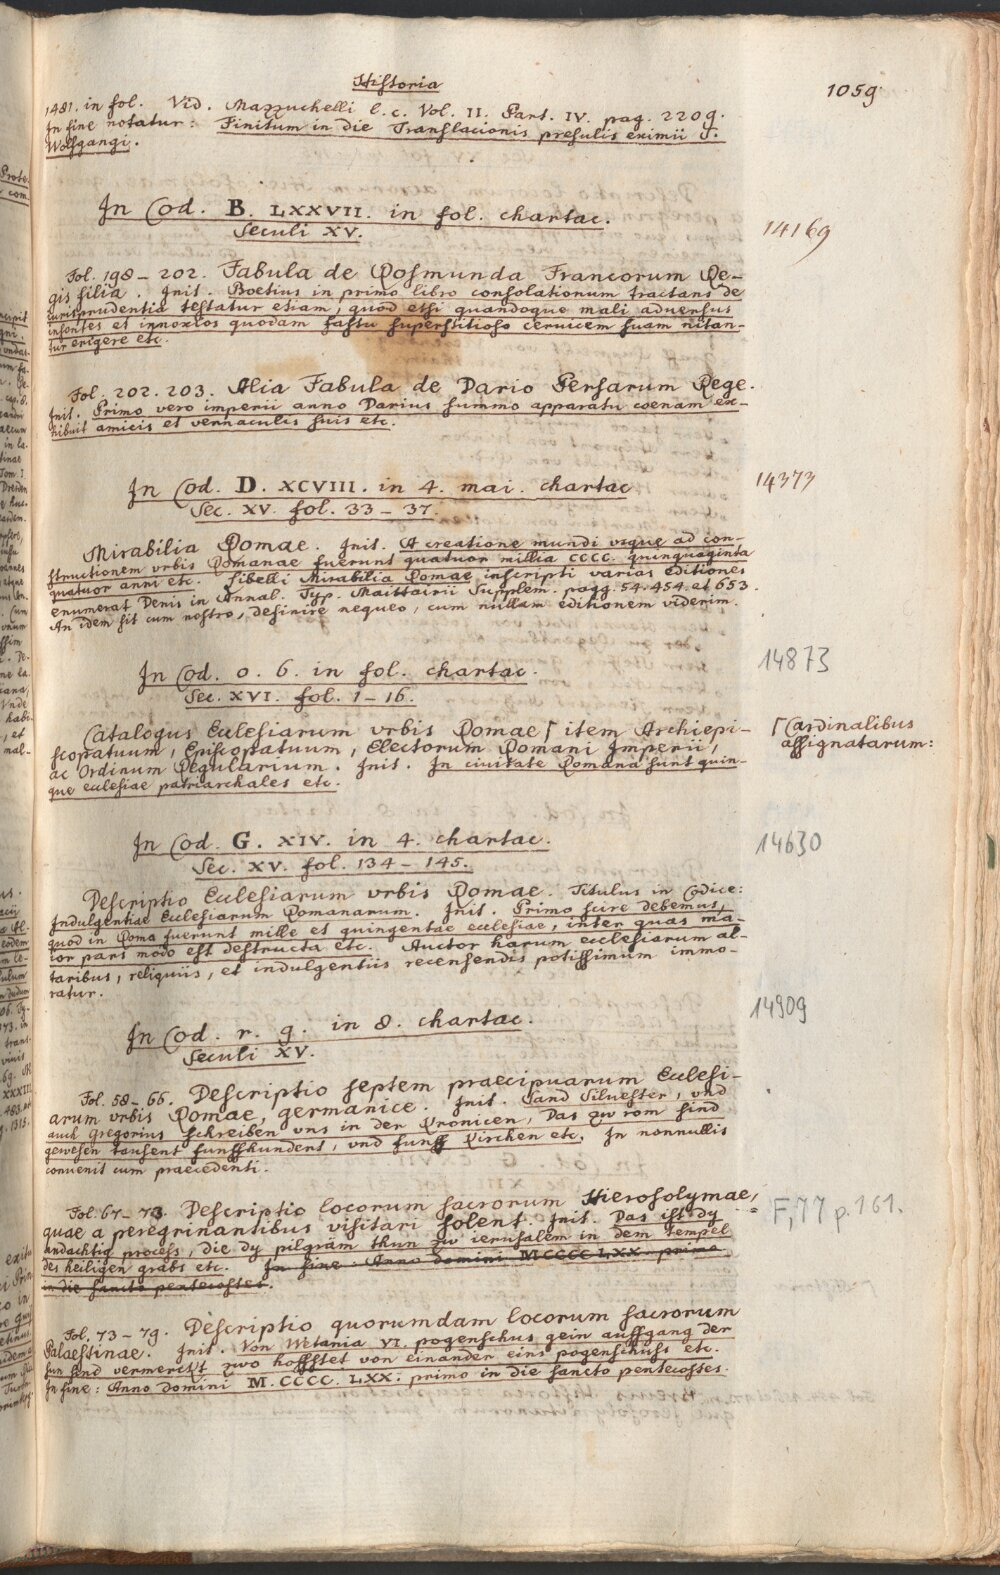 Historia
1059.
1481. in fol. Vid. Mazzuchelli l. c. Vol. II. Part. IV. pag. 2209.
In fine notatur: Finitum in die Translacionis presulis eximii S.
Wolfgangi.
In Cod. B. LXXVII. in fol. chartac.
Seculi XV.
14169
Fol. 198–202. Fabula de Rosmunda Francorum Re-
gis filia. Init. Boetius in primo libro consolationum tractans de
iurisprudentia testatur etiam, quod etsi quandoque mali adversus
insontes et innoxios quodam fastu superstitioso cervicem suam nitan-
tur erigere etc.
Fol. 202. 203. Alia Fabula de Dario Persarum Rege.
Init. Primo vero imperii anno Darius summo apparatu coenam ex-
hibuit amicis et vernaculis suis etc.
In Cod. D. XCVIII. in 4. mai. chartac
Sec. XV. fol. 33–37.
14373
Mirabilia Romae. Init. A creatione mundi usque ad con-
structionem vrbis Romanae fuerunt quatuor millia CCCC. quinquaginta
quatuor anni etc. Libelli Mirabilia Romae inscripti varias editiones
enumerat Denis in Annal. Typ. Maittairii Supplem. pagg. 54. 454. et 653.
An idem sit cum nostro, definire nequeo, cum nullam editionem viderim.
In Cod. o. 6. in fol. chartac.
Sec. XVI. fol. 1–16.
14873
Catalogus Ecclesiarum vrbis Romae ⌈ item Archiepi-
scopatuum, Episcopatuum, Electorum Romani Imperii,
ac Ordinum Regularium. Init. In civitate Romana sunt quin-
que ecclesiae patriarchales etc.
⌈ Cardinalibus
assignatarum:
In Cod. G. XIV. in 4. chartac.
Sec. XV. fol. 134–145.
14630
Descriptio Ecclesiarum vrbis Romae. Titulus in Codice:
Indulgentiae Ecclesiarum Romanarum. Init. Primo scire debemus,
quod in Roma fuerunt mille et quingentae ecclesiae, inter quas ma-
ior pars modo est destructa etc. Auctor harum ecclesiarum al-
taribus, reliquiis, et indulgentiis recensendis potissimum immo-
ratur.
In Cod. r. 9. in 8. chartac.
Seculi XV.
14909
Fol. 58–66. Descriptio septem praecipuarum Ecclesi-
arum vrbis Romae, germanice. Init. Sand Siluester, vnd
auch Gregorius schreiben vns in der Kronicen, Das zw rom sind
gewesen tausent funffhundert, vnd funff Kirchen etc. In nonnullis
convenit cum praecedenti.
Fol. 67–73. Descriptio locorum sacrorum Hierosolymae,
quae a peregrinantibus visitari solent. Init. Das ist dy
andachtig process, die dy pilgräm thun zw ierusalem in dem tempel
des heiligen grabs etc. In fine: Anno domini MCCCC LXX. primo
in die sancto pentecostes.
F, 77 p. 161.
Fol. 73–79. Descriptio quorumdam locorum sacrorum
Palaestinae. Init. Von Wetania VI. pogenschus gein auffgang der
sun sind vermerckt zwo hoffstet von einander eins pogenschuss etc.
In fine: Anno domini M. CCCC. LXX. primo in die sancto pentecostes.